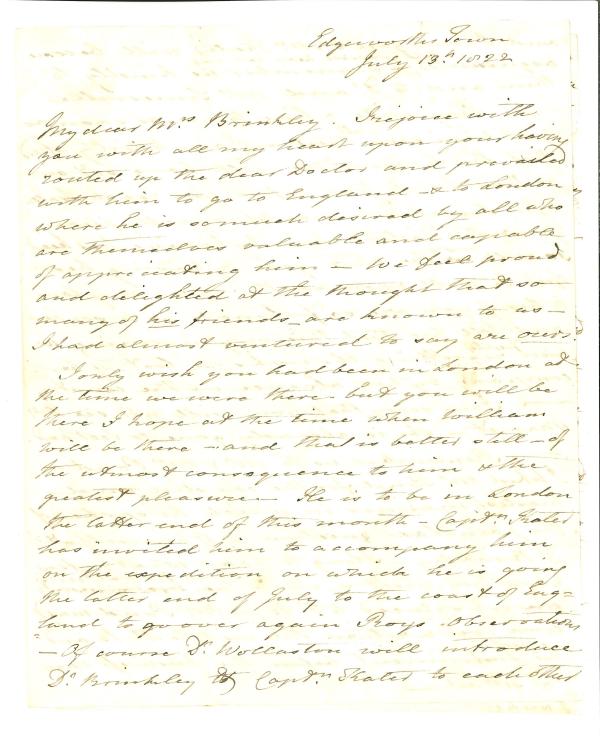 Edgeworths Town
July 13th 1822
My dear Mrs Brinkley. I rejoice with
you with all my heart upon your having
routed up the dear Doctor and prevailed
with him to go to England - & to London
where he is so much desired by all who
are themselves valuable and capable
of appreciating him - We feel proud
and delighted at the thought that so
many of his friends are known to us -
I had almost ventured to say are ours.
I only wish you had been in London at
the time we were there but you will be
there I hope at the time when William
will be there - and that is better still - of
the utmost consequence to him & the
greatest pleasure - He is to be in London
the latter end of this month - Captn. Kater
has invited him to accompany him
on the expedition on which he is going
the latter end of July to the coast of Eng=
land to go over again Roys observations
- Of course Dr. Wollaston will introduce
Dr. Brinkley & Captn. Kater to each other